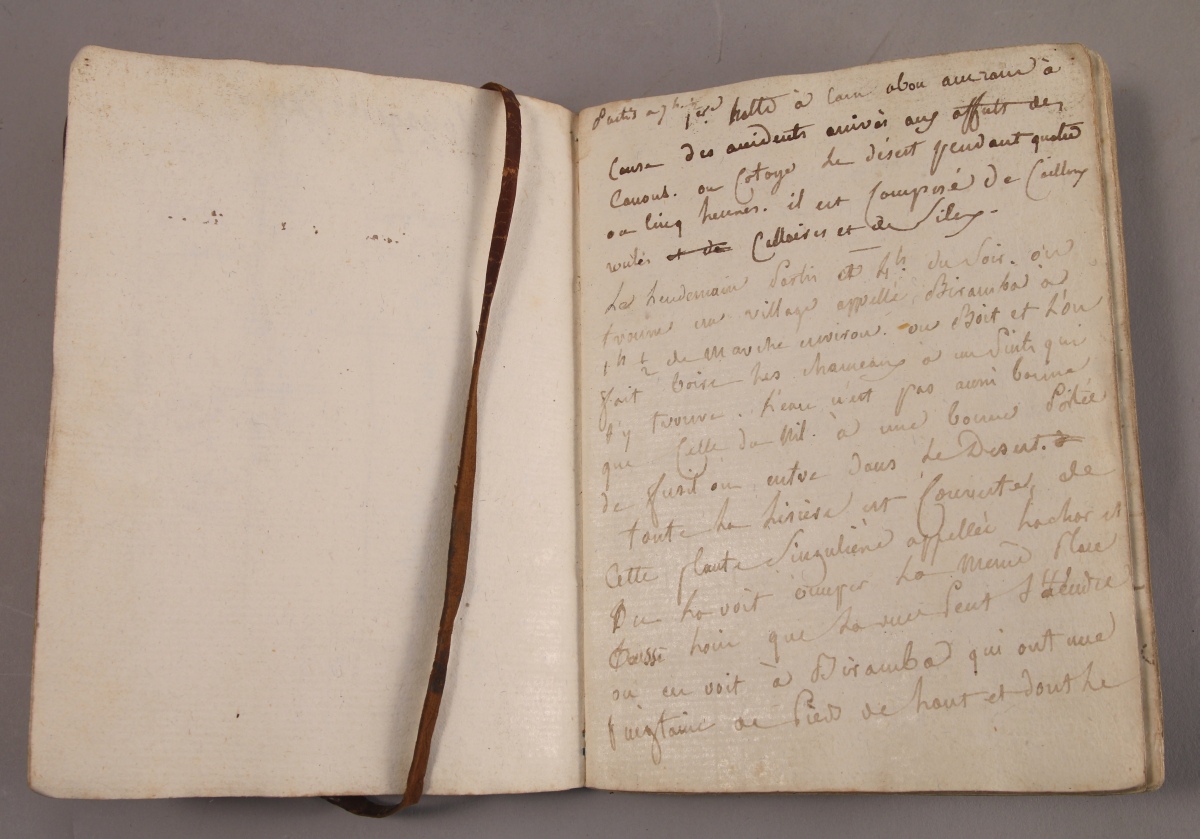 Partis a 7 h. 1ère halte à Cam abou amrane à
Cause des accidents arrivés aux affuts des
Canons. on Cotoye Le désert pendant quatre
ou Cinq heures. il est Composé de Cailloux
roulés et de Calloises et de Silex.
Le Lendemain Partis à 4h. du Soir. on
trouve un village appellé Biramba à
1h ½ de marche environ. on Boit et L'on
fait boire Les chameaux à un Puits qui
s'y trouve. L'eau n'est pas aussi bonne
que Celle du Nil. à une bonne Portée
de fusil on entre dans Le Desert.
toute La Lisière est Couverte, de
Cette plante Singulière appellée Lachar et
on La voit occuper La même Place
aussi Loin que La vue Peut S'étendre
on en voit à Biramba qui ont une
vingtaine de Pieds de haut et dont Le